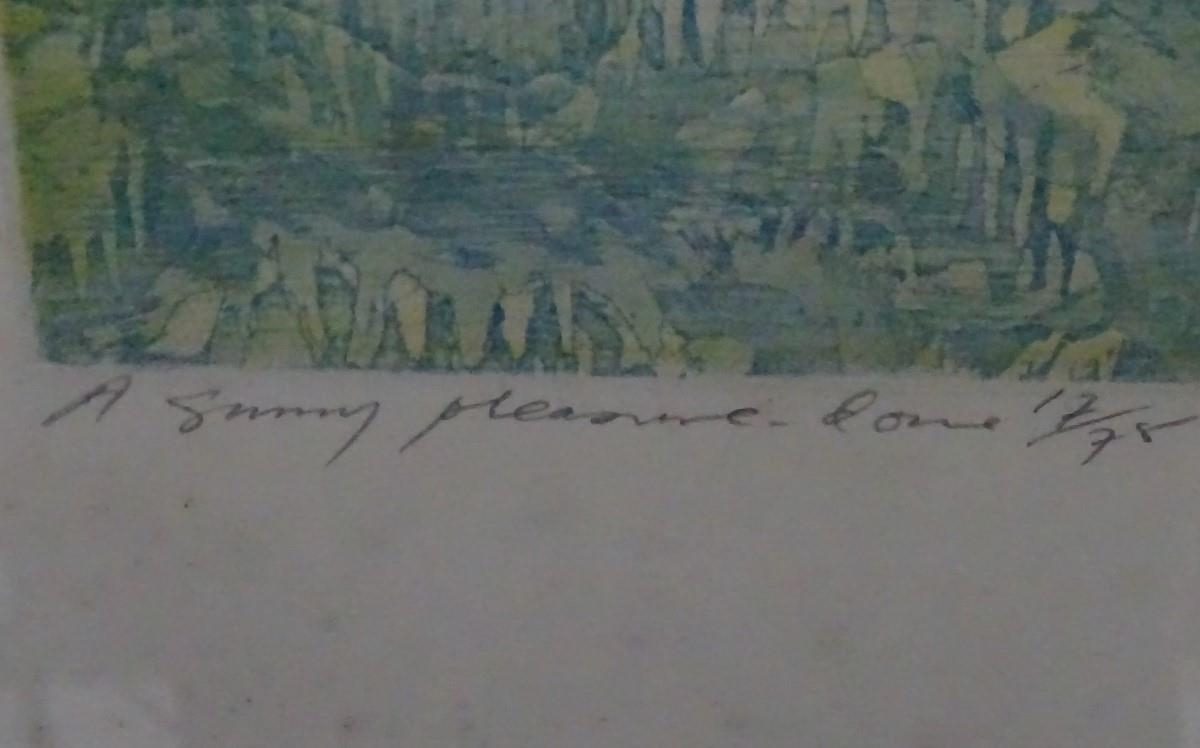 A sunny pleasure-dome 17/75